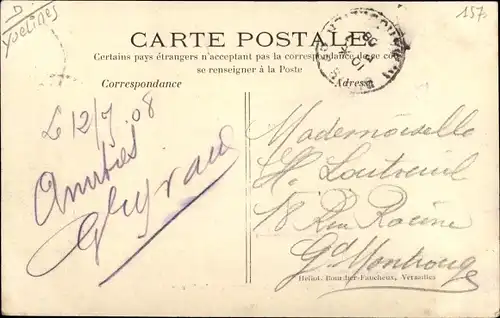 D
Yvelines
157
CARTE POSTALE
Certains pays étrangers n'acceptant pas la correspondance de ce côté
se renseigner à la Poste
Correspondance
Adresse
Le 12/7 08
Amitiés
Mademoiselle
H. Loutreuil
18 Rue Racine
Gd Montrouge
Héliot. Bourdier-Faucheux, Versailles